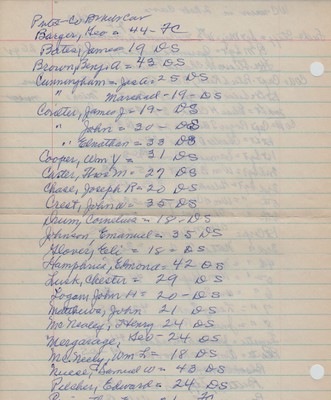 Barger, Geo = 44 - FC
Bates, James = 19 DS
Brown, Benj. A = 43 DS
Cunningham = Jas A = 25 DS
" Marshad - 19 - DS
Conter, James J = 19 - DS
" John = 30 - DS
" Elnathan = 33 DS
Cooper, Wm Y = 31 DS
Carter, M = 27 DS
Chase, Joseph R = 20 DS
Crest, John = 35 DS
Drum, Cornelius = 18 - DS
Johnson, Emanuel = 35 DS
Glover, Eli = 18 = DS
Hamphries, Edmond = 42 DS
Lusk, Chester = 29 DS
Logan, John H = 20 - DS
Matthews, John 21 DS
McNeeley, Henry 24 DS
Mcgarage, Geo - 24 DS
McNeely, Wm L = 18 DS
Nuese, Samuel W = 43 DS
Pilcher, Edward = 24 DS
21 FC